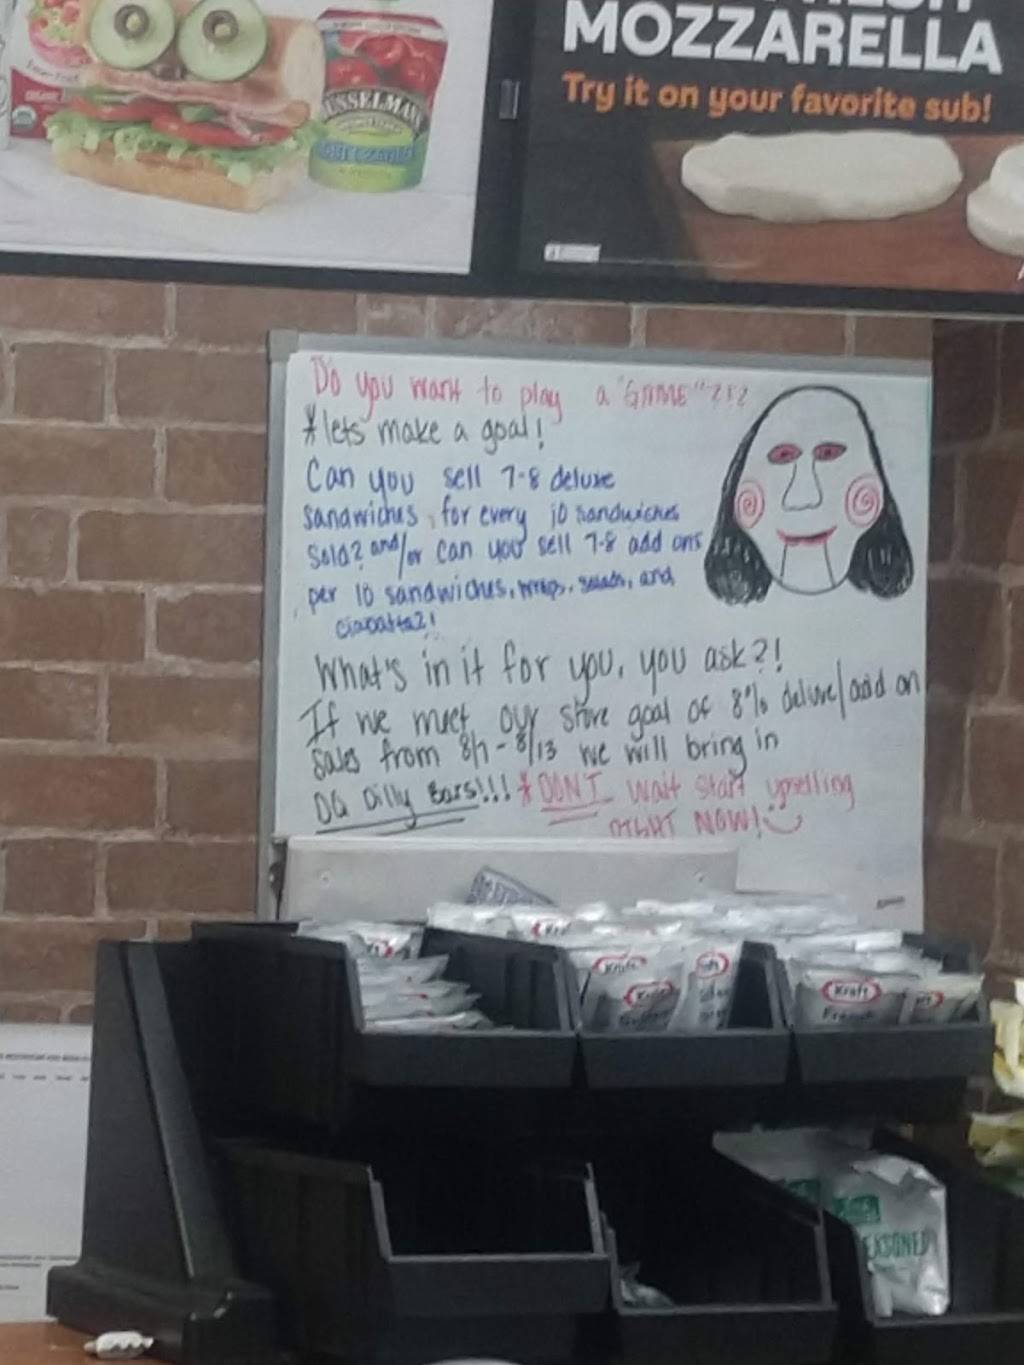 MOZZARELLA
Try it on your favorite sub!
Do you want to play a "GAME"?!?
*lets make a goal!
Can you sell 7-8 deluxe
sandwiches for every 10 sandwiches
sold? and/or can you sell 7-8 add ons
per 10 sandwiches, wraps, salads, and
ciabatta?!
What's in it for you, you ask?!
If we meet our store goal of 8% deluxe/add on
sales from 8/7 - 8/13 we will bring in
DQ Dilly Bars!!! *DONT wait start upselling
RIGHT NOW!
Kraft
Kraft
Kraft